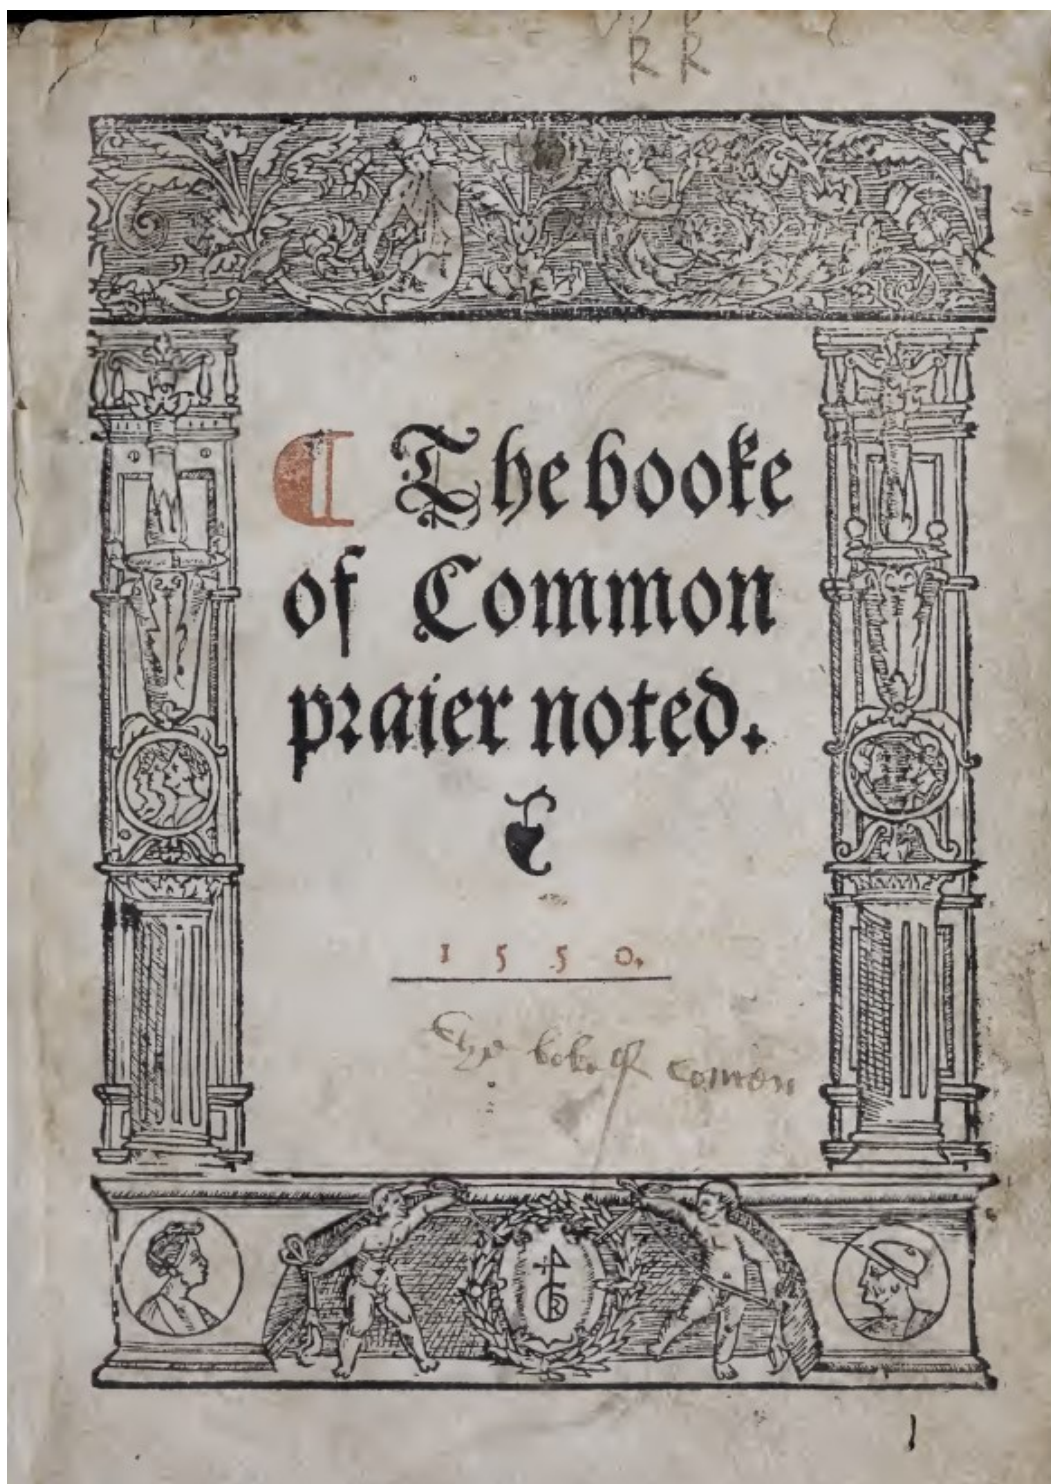 R R
¶ The booke
of Common
praier noted.
1550.
The boke of comon